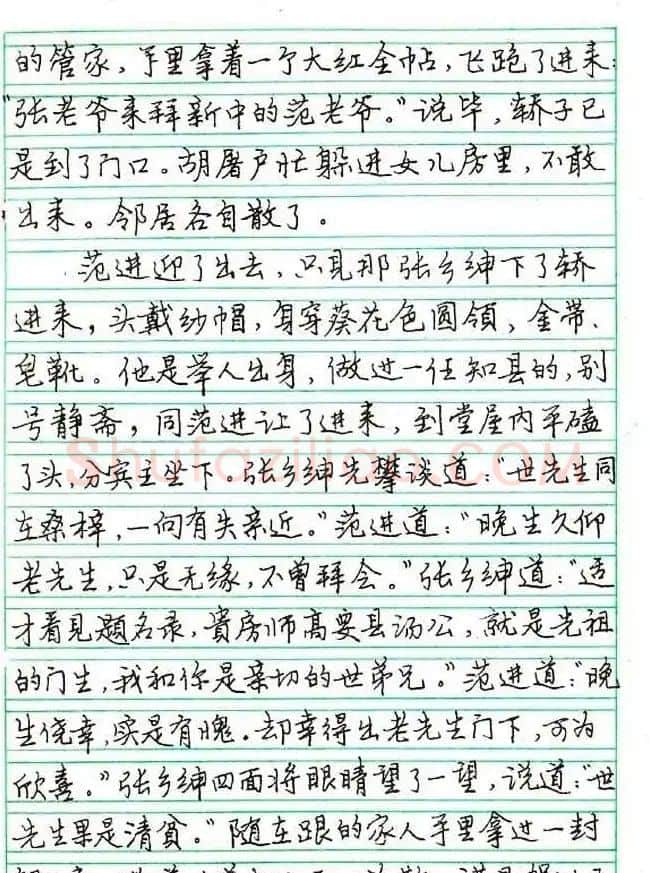 的管家，手里拿着一个大红全帖，飞跑了进来：
“张老爷来拜新中的范老爷。”说毕，轿子已
是到了门口。胡屠户忙躲进女儿房里，不敢
出来。邻居各自散了。
范进迎了出去，只见那张乡绅下了轿
进来，头戴纱帽，身穿葵花色圆領，金带、
皂靴。他是举人出身，做过一任知县的，别
号静斋，同范进让了进来，到堂屋内平磕
了头，分宾主坐下。张乡绅先攀谈道：“世先生同
在桑梓，一向有失亲近。”范进道：“晚生久仰
老先生，只是无缘，不曾拜会。”张乡绅道：“适
才看见题名录，貴房师高要县汤公，就是先祖
的门生，我和你是亲切的世弟兄。”范进道：“晚
生侥幸，实是有愧。却幸得出老先生门下，可为
欣喜。”张乡绅四面将眼睛望了一望，说道：“世
先生果是清贫。”随在跟的家人手里拿过一封
Shufaziliao.com